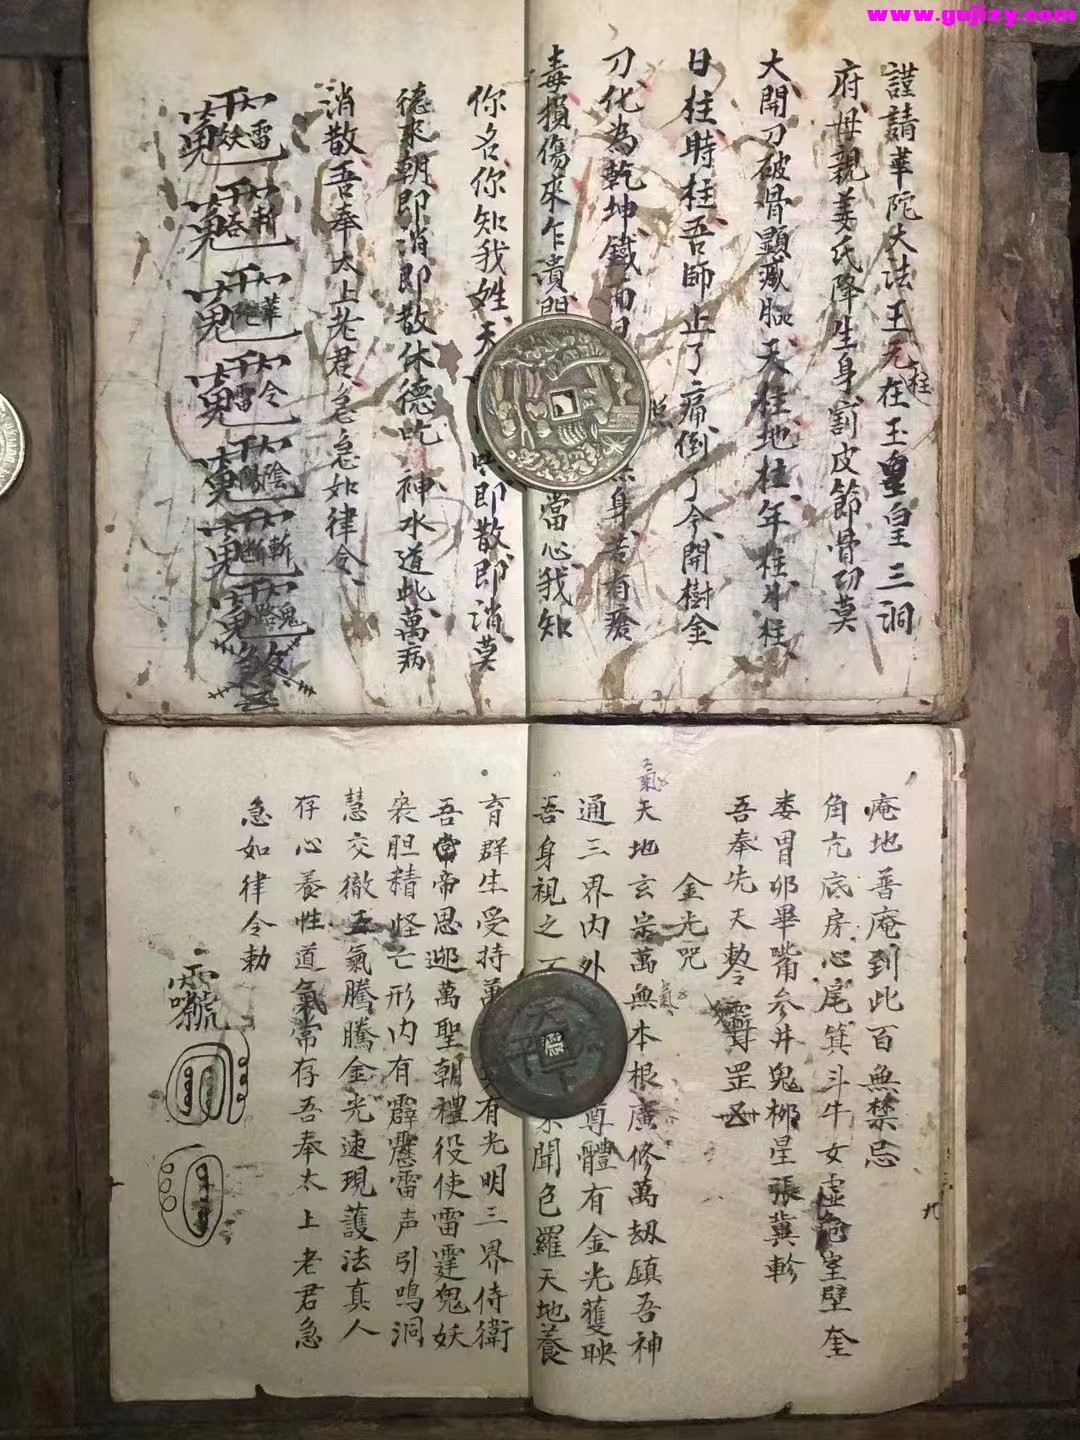 www.gujizy.com
謹請華陀大法王元在玉皇皇三洞
柱
府母親姜氏降生身割皮節骨功莫
大開刀破骨顯臟腦天柱地柱年柱月柱
日柱時柱吾師止了痛倒了令開樹金
刀化為乾坤鐵而 身若有瘡
毒損傷來乍潰 當心我知
你名你知我姓天 即散即消莫
德來朝即消即散休德吃神水道此萬病
消散吾奉太上老君急急如律令
妖雷
斬
陀華
雷令
陽陰
斬
路鬼
庵地普庵到此百無禁忌
角亢底房心尾箕斗牛女虛危室壁奎
娄胃卯畢嘴参井鬼柳星張冀軫
吾奉先天勅令 罡
金光咒
氣天地玄宗萬無本根廣修萬劫鎮吾神
通三界内外 尊體有金光蔓映
吾身視之不 聞色羅天地養
育群生受持萬 有光明三界侍衛
吾常帝思迎萬聖朝禮役使雷霆鬼妖
喪胆精怪亡形内有霹靂雷声引鳴洞
慧交徹五氣騰騰金光速現護法真人
存心養性道氣常存吾奉太上老君急
急如律令勅
天下 德